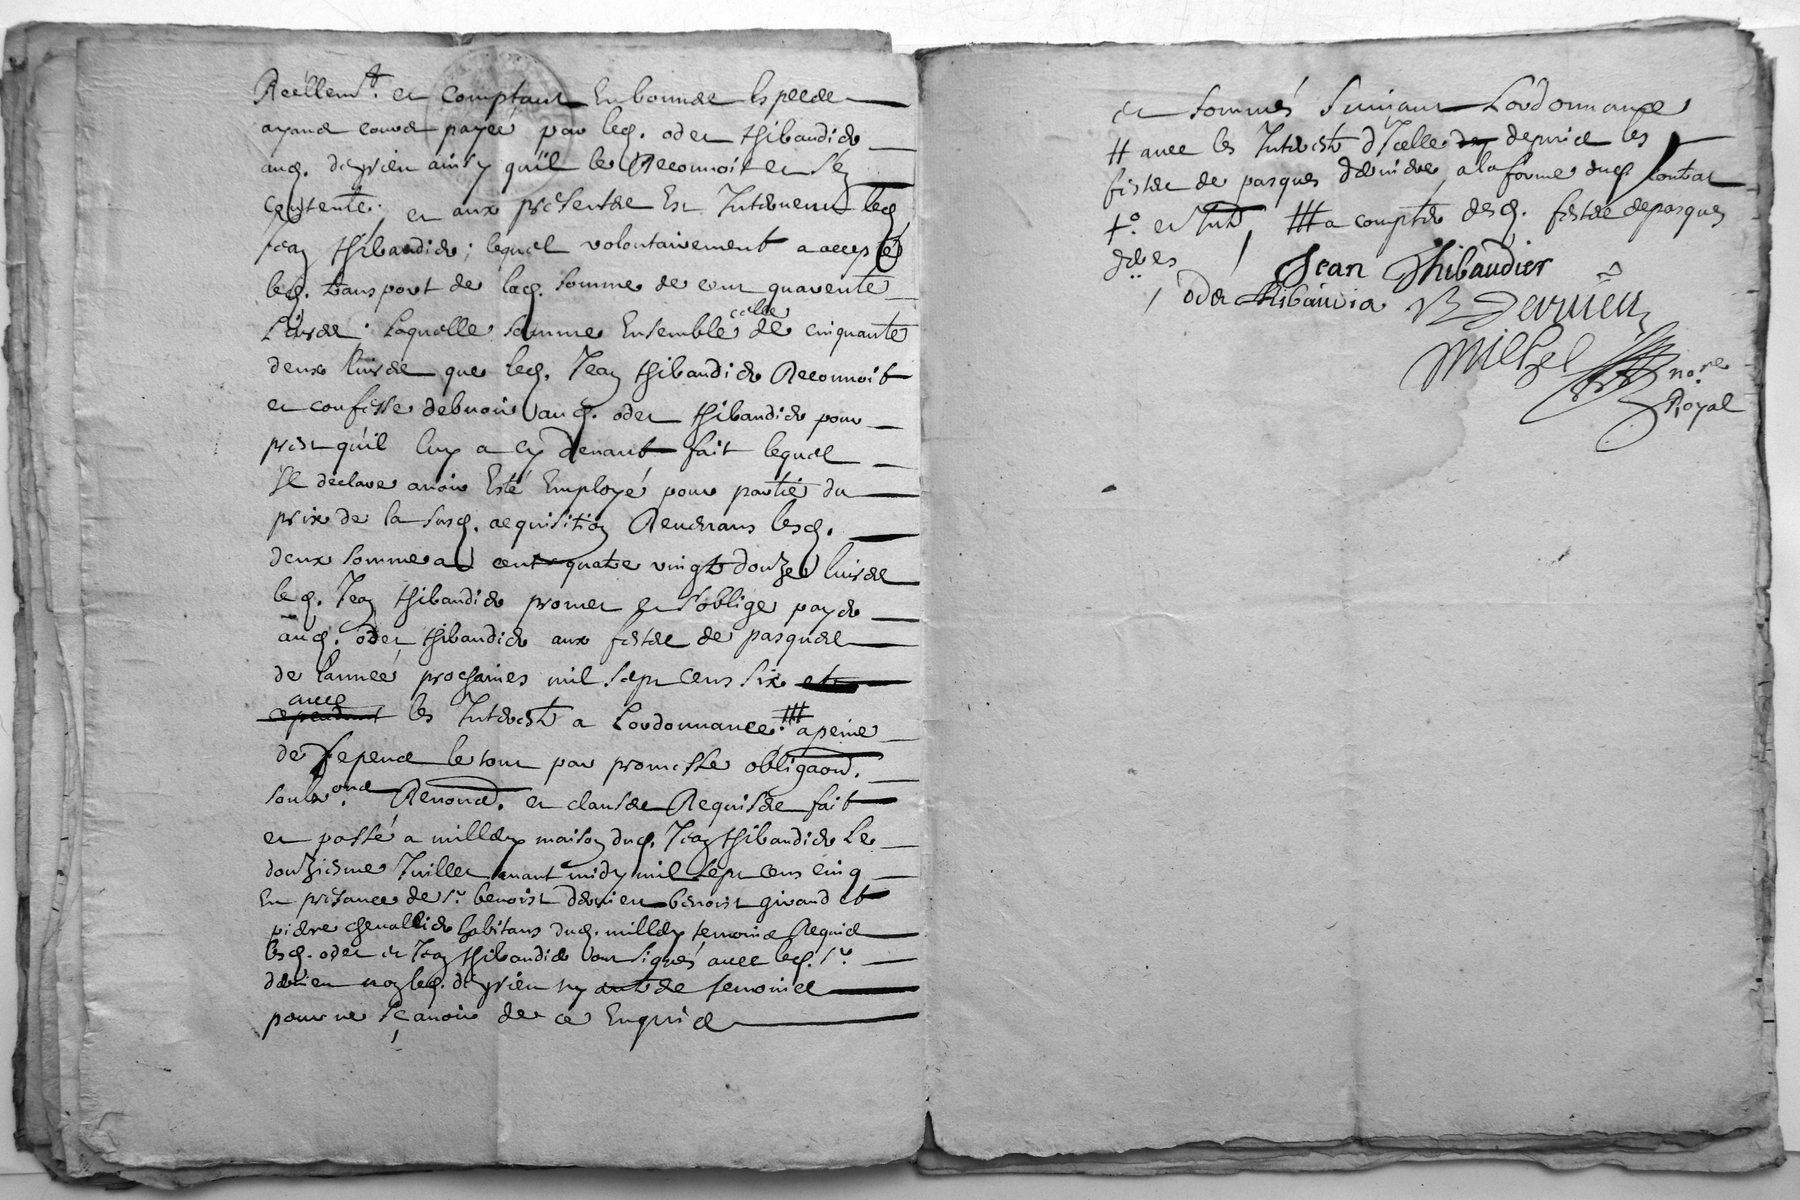 Réellemt. et comptant En bonnes Especes
ayant cours payée par led. odet thibaudier
aud. deyrieu ainsy quil le Reconnoit et s'en
contente; et aux présentes Est Intervenut led.
Jean thibaudier; lequel volontairement a accepté
led. transport de lad. somme de cent quarente
Livres; Laquelle somme Ensemble celle de cinquante
deux livres que led. Jean thibaudier Reconnoit
et confesse debvoir aud. odet thibaudier pour
prest qu'il luy a cy devant fait lequel
Il déclare avoir Esté Employé pour partie du
prix de la susd. acquisition Revenans lesd.
deux sommes a cent quatre vingt douze livres
led. Jean thibaudier promet et s'oblige payer
aud. odet thibaudier aux festes de pasques
de l'année prochaines mil sept cens six et
cependant avec les Interest a Lordonnance # a peine
de depens le tout par promesse obligaon.
soubmons. Renonс. et clauses Requises fait
et passé a millery maison dud. Jean thibaudier Le
douziesme Juillet avant midy mil sept cens cinq
En présance de sr. benoist derrieu benoist giraud et
pierre chevallier habitans dud. millery temoins Requis
lesd. odet et Jean thibaudier ont signés avec led. sr.
derrieu non led. deyrieu ny autre temoins
pour ne sçavoir de ce Enquis
et sommés suivant Lordonnance
# avec les Interest d'Icelle depuis les
festes de pasques dernieres, a la forme dud. contrat
a compter desd. festes de pasques
Jean Thibaudier
odet thibaudier B Derrieu
Michel nore
Royal